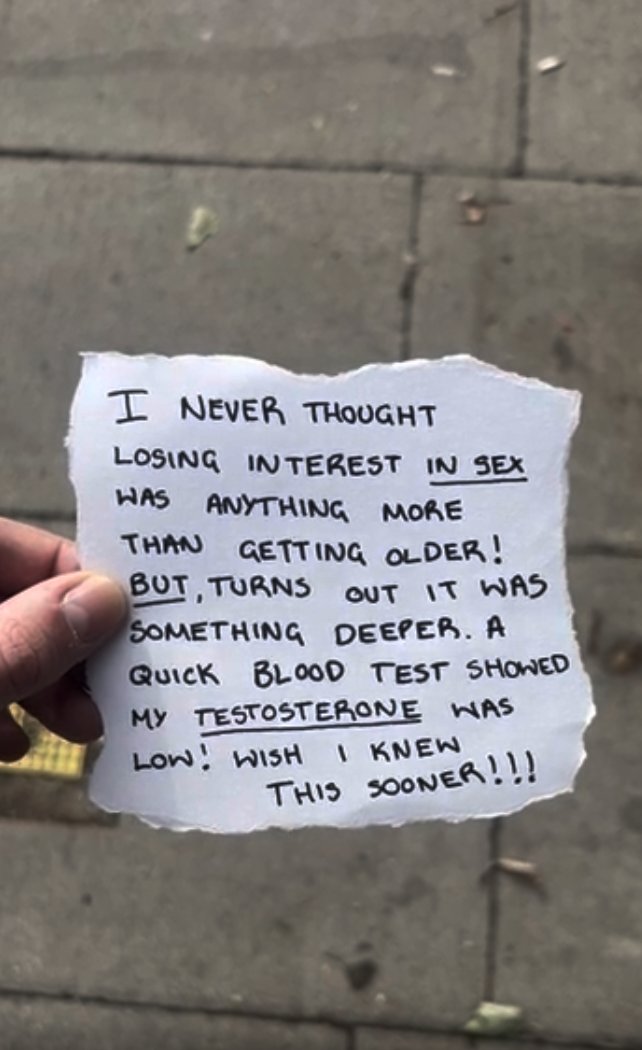 I NEVER THOUGHT
LOSING INTEREST IN SEX
WAS ANYTHING MORE
THAN GETTING OLDER!
BUT, TURNS OUT IT WAS
SOMETHING DEEPER. A
QUICK BLOOD TEST SHOWED
MY TESTOSTERONE WAS
LOW! WISH I KNEW
THIS SOONER!!!